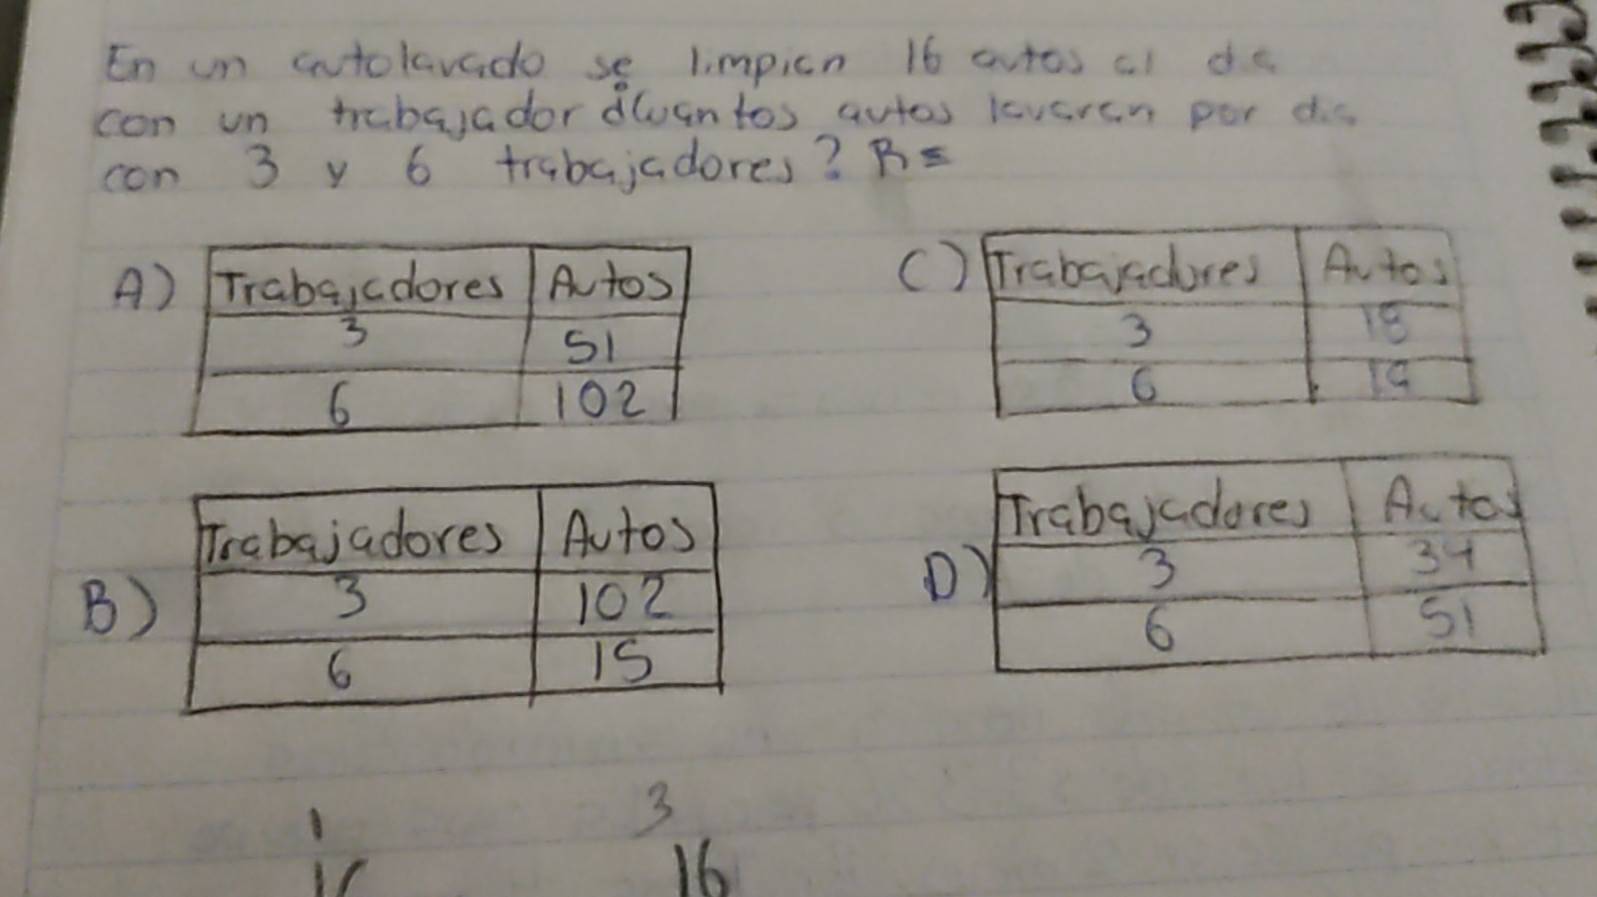 En un autolavado se limpian 16 autos al dia
con un trabajador ¿Cuantos autos lavaran por dia
con 3 y 6 trabajadores? R=
A) Trabajadores Autos
3 51
6 102
C) Trabajadores Autos
3 18
6 19
B) Trabajadores Autos
3 102
6 15
D) Trabajadores Autos
3 34
6 51
1 3
16